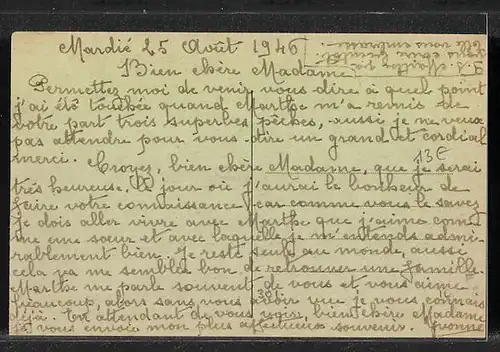 Mardié 25 Août 1946
Bien chère Madame
Permettez moi de venir vous dire à quel point
j'ai été touchée quand Marthe m'a remis de
votre part trois superbes pêches, aussi je ne veux
pas attendre pour vous dire un grand et cordial
merci.
13€
Croyez, bien chère Madame, que je serai
très heureuse, le jour où j'aurai le bonheur de
faire votre connaissance car comme vous le savez
je dois aller vivre avec Marthe que j'aime comme
une sœur et avec laquelle je m'entends admi-
rablement bien. Je reste seule au monde, aussi
cela va me sembler bon de retrouver une famille.
Marthe me parle souvent de vous et, vous aime
beaucoup, alors sans vous avoir vue je vous connais
déjà. En attendant de vous voir, bien chère Madame
je vous envoie mon plus affectueux souvenir. Yvonne
P.S. Marthe
vous
vous embrasse.